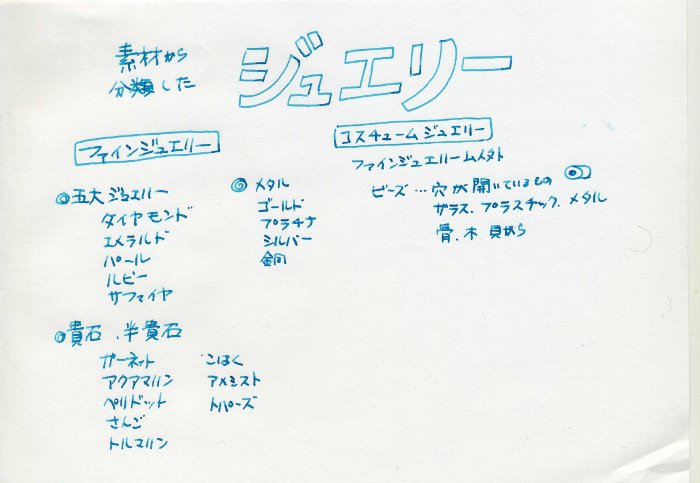 素材から
分類した
ジュエリー
ファインジュエリー
◎五大ジュエリー
ダイヤモンド
エメラルド
パール
ルビー
サファイヤ
◎メタル
ゴールド
プラチナ
シルバー
銅
◎貴石、半貴石
ガーネット
アクアマリン
ペリドット
さんご
トルマリン
こはく
アメシスト
トパーズ
コスチュームジュエリー
ファインジュエリー以外
ビーズ…穴が開いているもの
ガラス、プラスチック、メタル
骨、木、貝から